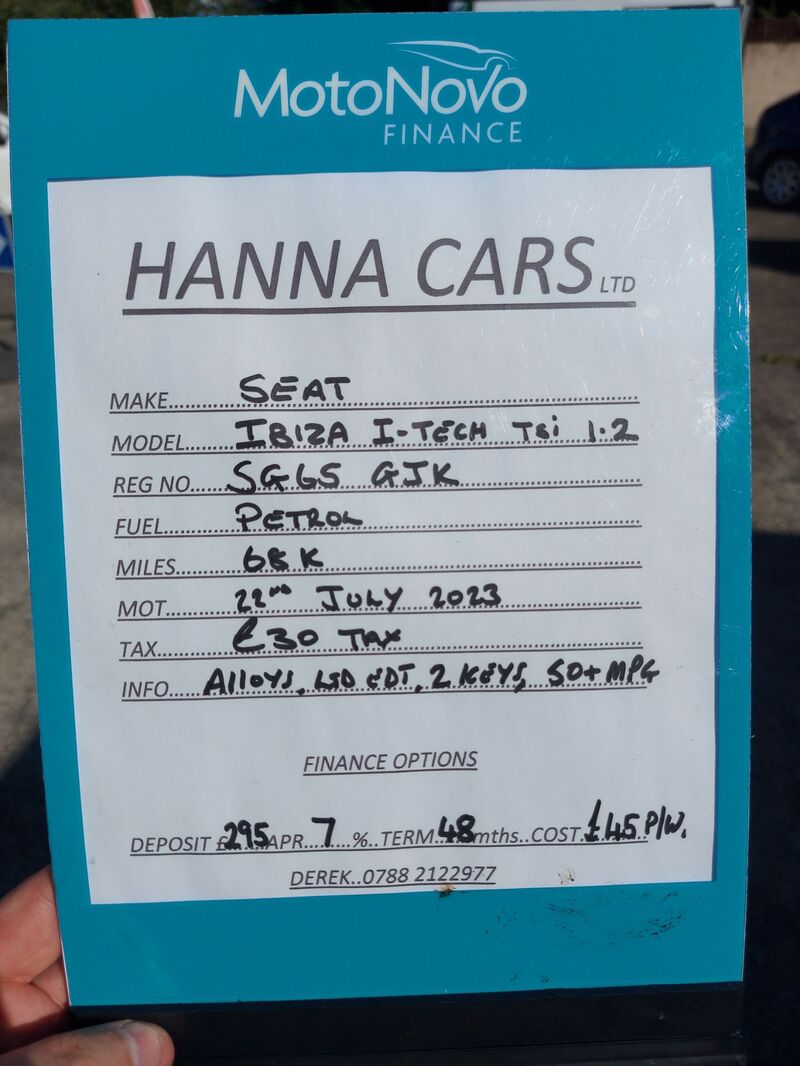 MotoNovo
FINANCE
HANNA CARS LTD
MAKE......SEAT
MODEL......IBIZA I-TECH TSi 1.2
REG NO......SG65 GJK
FUEL......PETROL
MILES......68K
MOT......22ND JULY 2023
TAX......£30 TAX
INFO......Alloys, LTD EDT, 2 KEYS, 50+ MPG
FINANCE OPTIONS
DEPOSIT £295 APR 7 %..TERM 48 mths..COST £45 P/W.
DEREK..0788 2122977